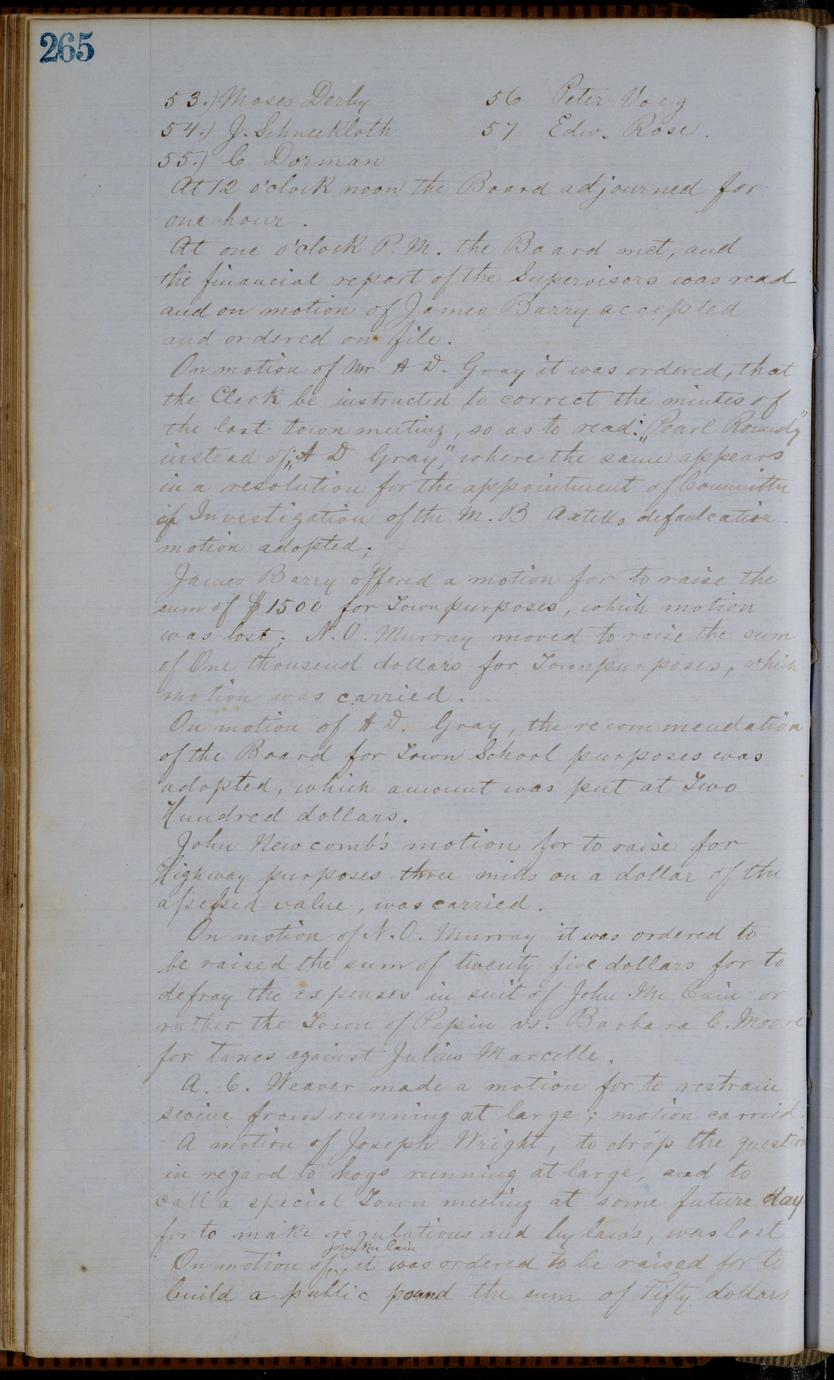 265
53.) Moses Derby 56 Peter Voeg
54.) J. Schneekloth 57 Edw. Rose.
55.) C Dorman
At 12 o'clock noon the Board adjourned for
one hour.
At one o'clock P.M. the Board met, and
the financial report of the Supervisors was read
and on motion of James Barry accepted
and ordered on file.
On motion of Mr. A D. Gray it was ordered, that
the Clerk be instructed to correct the mintes of
the last town meeting, so as to read: "Pearl Romedy"
instead of "A D Gray", where the same appears
in a resolution for the appointment of Committee
of Investigation of the M. B Axtells defaulcation.
motion adopted;
James Barry offered a motion for to raise the
sum of $1500 for Townpurposes, which motion
was lost; N.O. Murray moved to raise the sum
of One thousend dollars for Townpurposes, which
motion was carried.
On motion of A D. Gray, the recommendation
of the Board for Town School purposes was
adopted, which amount was put at Two
Hundred dollars.
John Newcomb's motion for to raise for
Highway purposes three mills on a dollar of the
assessed value, was carried.
On motion of N.O. Murray it was ordered to
be raised the sum of twenty five dollars for to
defray the expenses in suit of John Mc Cain or
rather the Town of Pepin vs. Barbara C. Moore
for taxes against Julius Marcelle.
A. C. Weaver made a motion for to restrain
swine from running at large; motion carried.
A motion of Joseph Wright, to drop the question
in regard to hogs running at large, and to
call a special Town meeting at some future day
for to make regulations and bylaws, was lost
John Mc Cain
On motion of, it was ordered to be raised for to
build a public pound the sum of Fifty dollars